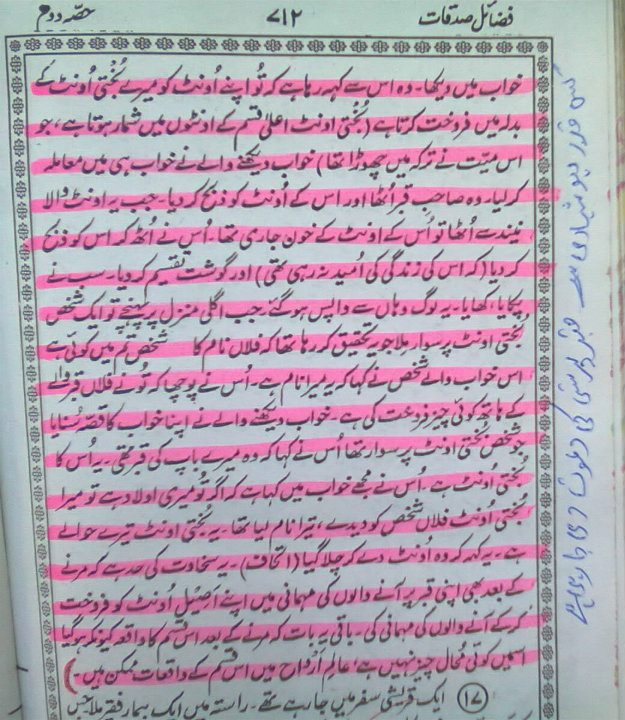 فضائل صدقات ۷۱۲ حصہ دوم
خواب میں دیکھا۔ وہ اس سے کہہ رہا ہے کہ تُو اپنے اُونٹ کو میرے بُختی اُونٹ کے
بدلہ میں فروخت کرتا ہے (بُختی اونٹ اعلیٰ قسم کے اونٹوں میں شمار ہوتا ہے، جو
اس میّت نے ترکہ میں چھوڑا تھا) خواب دیکھنے والے نے خواب ہی میں معاملہ
کر لیا۔ وہ صاحبِ قبر اُٹھا اور اس کے اُونٹ کو ذبح کر دیا۔ جب یہ اونٹ والا
نیند سے اُٹھا تو اُس کے اونٹ کے خون جاری تھا۔ اُس نے اُٹھ کر اس کو ذبح
کر دیا (کہ اس کی زندگی کی اُمید نہ رہی تھی) اور گوشت تقسیم کر دیا۔ سب نے
پکایا، کھایا۔ یہ لوگ وہاں سے واپس ہو گئے۔ جب اگلی منزل پر پہنچے تو ایک شخص
بُختی اونٹ پر سوار مِلا جو یہ تحقیق کر رہا تھا کہ فلاں نام کا شخص تم میں کوئی ہے
اس خواب والے شخص نے کہا کہ یہ میرا نام ہے۔ اُس نے پوچھا کہ تُو نے فلاں قبر والے
کے ہاتھ کوئی چیز فروخت کی ہے۔ خواب دیکھنے والے نے اپنا خواب کا قصّہ سُنایا
جو شخص بُختی اونٹ پر سوار تھا اُس نے کہا کہ وہ میرے باپ کی قبر تھی۔ یہ اُس کا
بُختی اُونٹ ہے۔ اُس نے مجھے خواب میں کہا ہے کہ اگر تُو میری اولاد ہے تو میرا
بُختی اونٹ فلاں شخص کو دیدے، تیرا نام لیا تھا۔ یہ بُختی اونٹ تیرے حوالے
ہے۔ یہ کہہ کر وہ اُونٹ دے کر چلا گیا (اتحاف)۔ یہ سخاوت کی حد ہے کہ مرنے
کے بعد بھی اپنی قبر پر آنے والوں کی مہمانی میں اپنے اَصِیْل اُونٹ کو فروخت
کر کے آنے والوں کی مہمانی کی۔ باقی یہ بات کہ مرنے کے بعد اس قسم کا واقعہ کیونکر ہو گیا
اسمیں کوئی مُحال چیز نہیں ہے، عالمِ اَرْواح میں اس قسم کے واقعات ممکن ہیں۔)
(۱۷) ایک قریشی سفر میں جا رہے تھے۔ راستہ میں ایک بیمار فقیر ملا جس